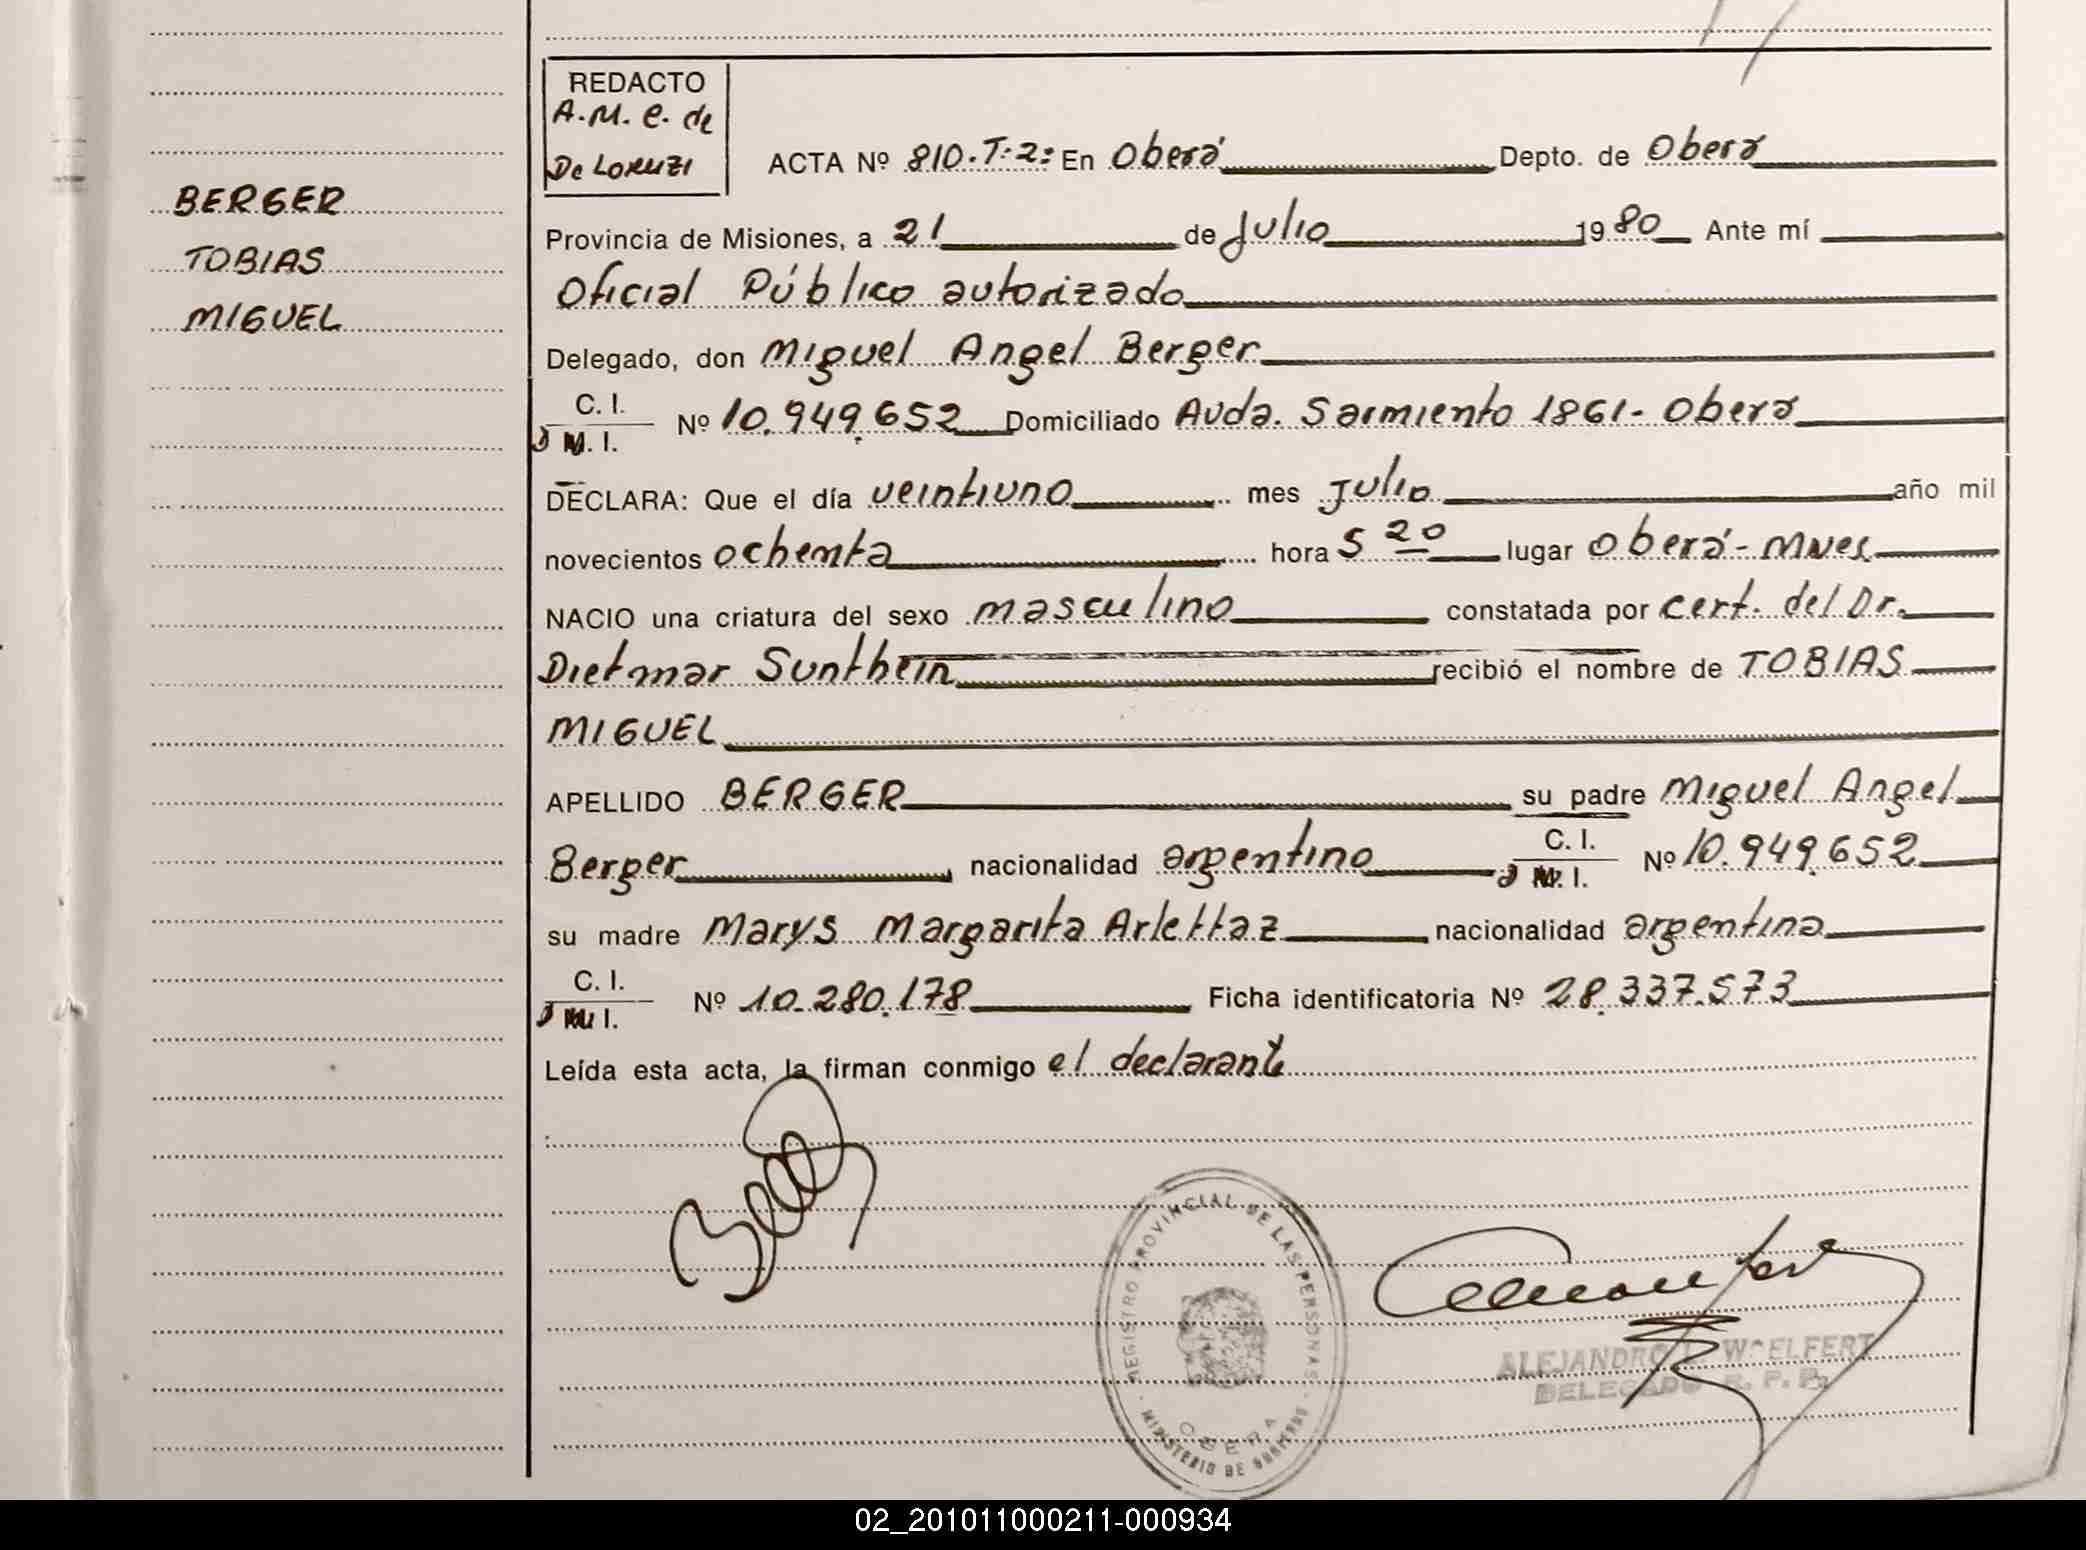 REDACTO
A.M.C. de
De Lorenzi
ACTA Nº 810.T.2: En Oberá Depto. de Oberá
BERGER
TOBIAS
MIGUEL
Provincia de Misiones, a 21 de Julio 1980 Ante mí
Oficial Público autorizado
Delegado, don Miguel Angel Berger
C. I.
D M. I. Nº 10.949.652 Domiciliado Avda. Sarmiento 1861 - Oberá
DECLARA: Que el día veintiuno mes Julio año mil
novecientos ochenta hora 5 20 lugar Oberá - Mnes
NACIO una criatura del sexo masculino constatada por cert. del Dr.
Dietmar Sunthein recibió el nombre de TOBIAS
MIGUEL
APELLIDO BERGER su padre Miguel Angel
Berger nacionalidad argentino C. I. D M. I. Nº 10.949.652
su madre Marys Margarita Arlettaz nacionalidad argentina
C. I.
D M. I. Nº 10.280.178 Ficha identificatoria Nº 28.337.573
Leída esta acta, la firman conmigo el declarante
REGISTRO PROVINCIAL DE LAS PERSONAS
OBERA
MINISTERIO DE GOBIERNO
ALEJANDRO L. WOELFERT
DELEGADO R. P. P.
02_201011000211-000934